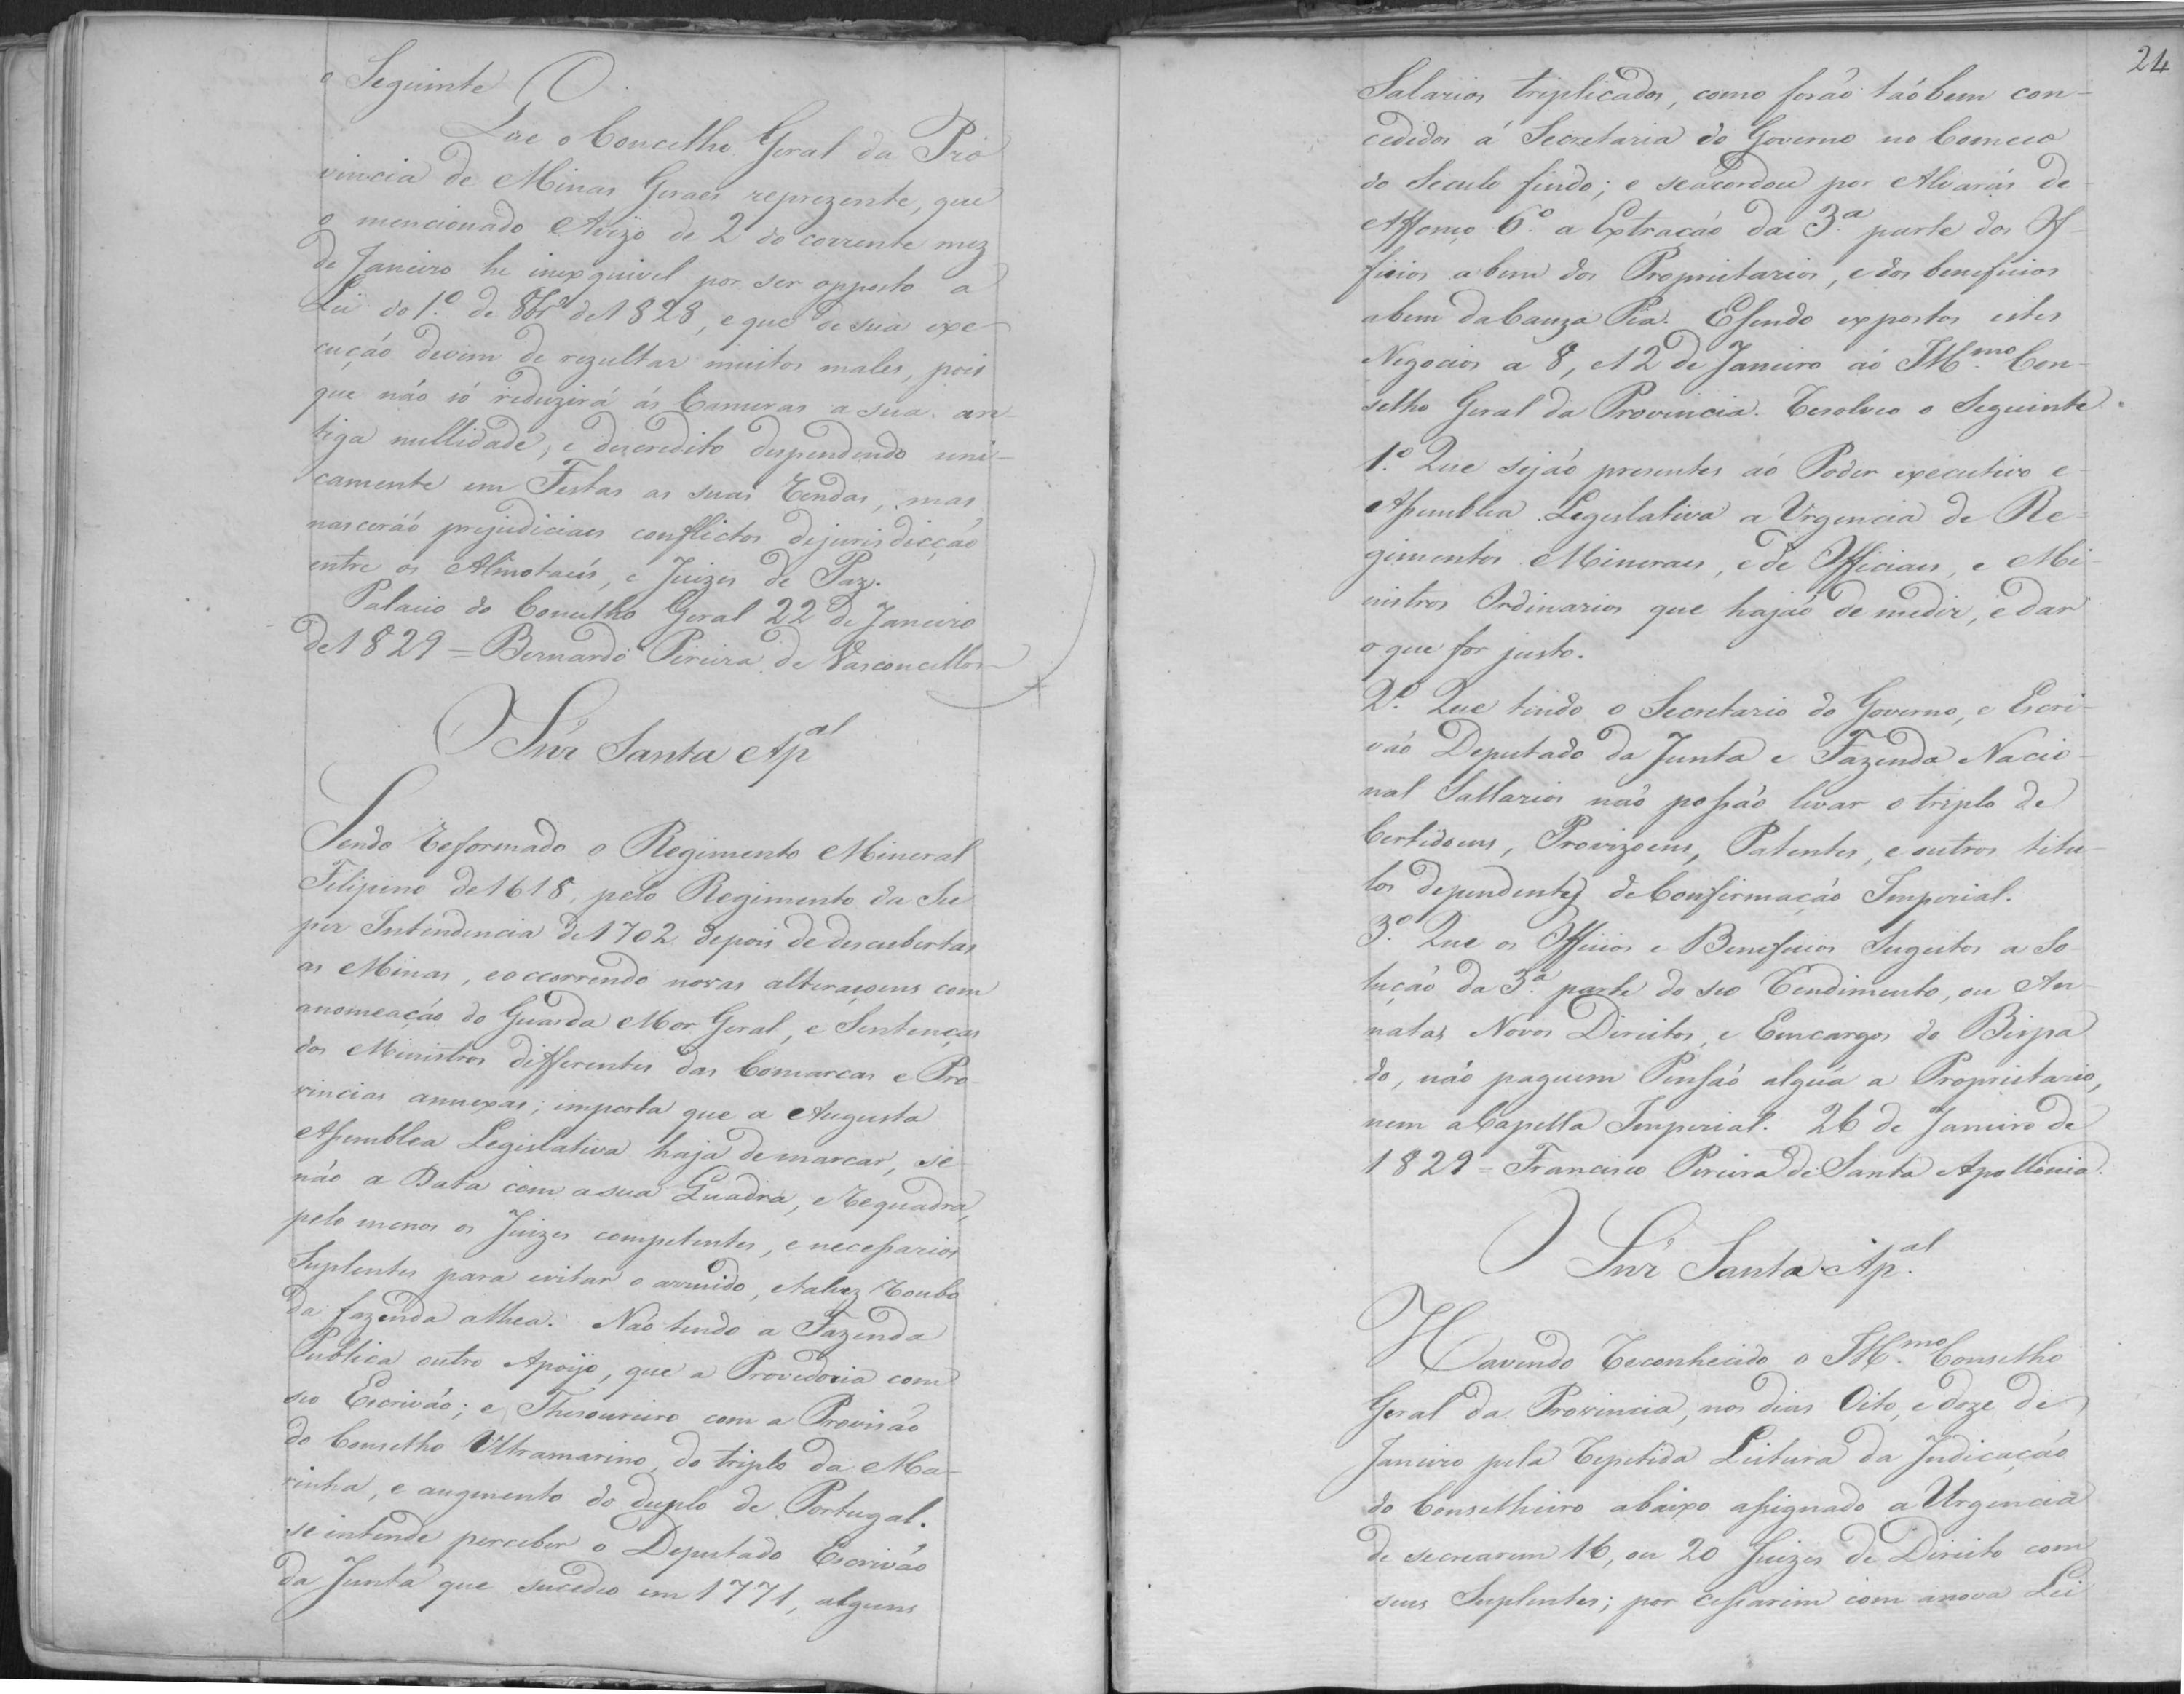 o Seguinte
Que o Concelho Geral da Pro
vincia de Minas Geraes reprezente, que
o mencionado Avizo de 2 do corrente mez
de Janeiro he inexquivel por ser opposto a
Lei do 1.º de 8br.º de 1828, e que de sua exe-
cução devem de rezultar muitos males, pois
que não só reduzirá ás Cameras a sua an
tiga nullidade, e descredito despendendo uni-
camente em Festas as suas Rendas, mas
nascerão prejudiciaes conflictos dejurisdicção
entre os Almotacés, e Juizes de Paz.
Palacio do Concelho Geral 22 de Janeiro
de 1829 = Bernardo Pereira de Vasconcellos
Snr̃ Santa Ap.al
Sendo Reformado o Regimento Mineral
Filipino de 1618, pelo Regimento da Su
per Intendencia de 1702 depois de descubertas
as Minas, e occorrendo novas alteraçoens com
anomeação do Guarda Mor Geral, e Sentenças
dos Ministros differentes das Comarcas e Pro-
vincias annexas; importa que a Augusta
Assemblea Legislativa haja demarcar, se
não a Data com asua Quadra, e Requadra,
pelo menos os Juizes competentes, e necessarios
Suplentes para evitar o arruido, etalvez Roubo
da fazenda alhea. Não tendo a Fazenda
Publica outro Apoijo, que a Provedoria com
seo Escrivão; e Thesoureiro com a Provisão
do Conselho Ultramarino, do triplo da Ma-
rinha, e augmento do duplo de Portugal.
se intende perceber o Deputado Escrivão
da Junta que sucedeo em 1771, alguns
24
Salarios triplicados, como forão tãobem con-
cedidos á Secretaria do Governo no Comeco
do Seculo findo; e seacordou por Alvarás de
Affonço 6.º a Extração da 3.ª parte dos Of-
ficios abem dos Proprietarios, e dos beneficios
abem daCauza Pia. Esendo expostos estes
Negocios a 8, e12 de Janeiro ao Ill.mo Con-
selho Geral da Provincia. Resolveo o Seguinte.
1.º Que sejão presentes aó Poder executivo e
Assemblea Legislativa a Urgencia de Re-
gimentos Mineraes, e de Officiaes, e Mi-
nistros Ordinarios que hajão de medir, e dar
o que for justo.
2.º Que tendo o Secretario do Governo, e Escri-
vão Deputado da Junta e Fazenda Nacio-
nal Sallarios não possão levar o triplo de
Certidoens, Provizoens, Patentes, e outros titu-
los dependentes deConfirmação Imperial.
3.º Que os Officios e Beneficios Sugeitos a So-
lução da 3.ª parte do seo Rendimento, ou An-
natas Novos Direitos, e Emcargos do Bispa
do, não paguem Pensão algũa a Proprietario,
nem aCapella Imperial. 26 de Janeiro de
1829 = Francisco Pereira de Santa Apollonia.
Snr̃ Santa Ap.al
Havendo Reconhecido o Ill.mo Conselho
Geral da Provincia, nos dias Oito, e doze de
Janeiro pela Repetida Leitura da Indicação
do Conselheiro abaixo assignado a Urgencia
de secrearem 16, ou 20 Juizes de Direito com
seus Suplentes; por cessarem com anova Lei